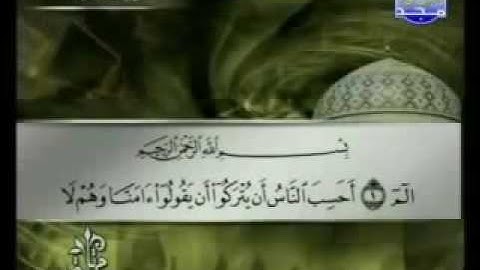 مجد
بِسْمِ ٱللَّهِ ٱلرَّحْمَٰنِ ٱلرَّحِيمِ
الٓمٓ ۝١ أَحَسِبَ ٱلنَّاسُ أَن يُتْرَكُوٓا۟ أَن يَقُولُوٓا۟ ءَامَنَّا وَهُمْ لَا